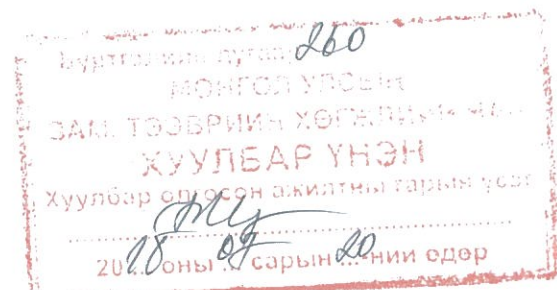 Бүртгэлийн дугаар 260
МОНГОЛ УЛСЫН
ЗАМ, ТЭЭВРИЙН ХӨГЖЛИЙН
ХУУЛБАР ҮНЭН
Хуулбар олгосон ажилтны гарын үсэг
2018 оны 09 сарын 20 ний өдөр